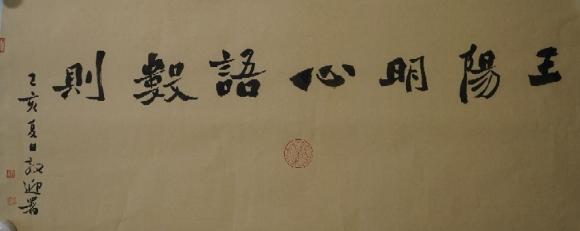 王陽明心語數則
乙亥夏日敬迎署